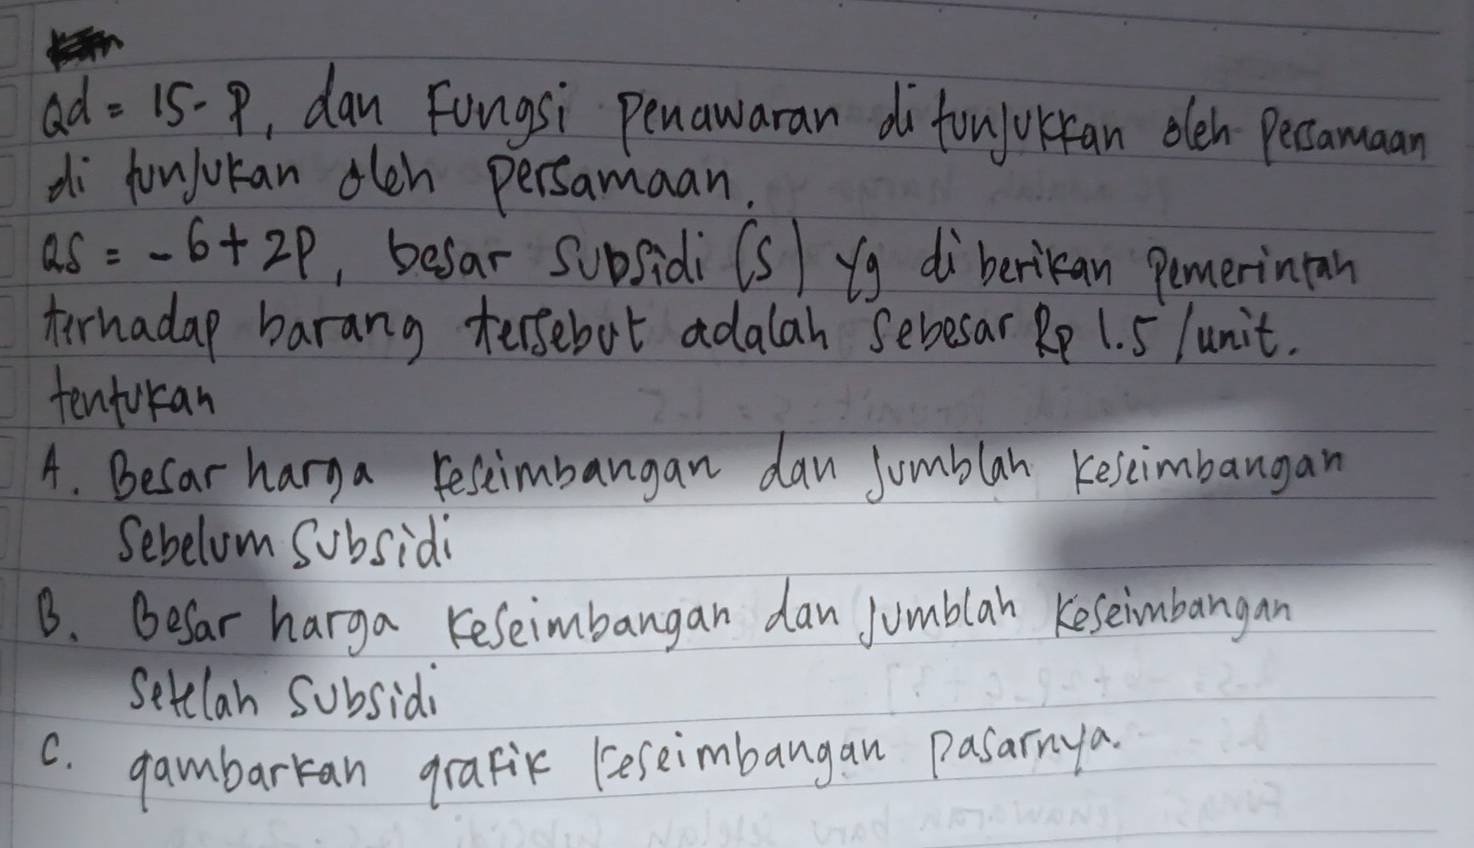 Qd = 15 - P, dan Fungsi Penawaran di tunjukkan oleh Persamaan
di tunjukan oleh persamaan.
QS = -6 + 2P, besar Subsidi (S) yg di berikan Pemerintah
terhadap barang tersebut adalah Sebesar Rp 1.5 /unit.
tentukan
A. Besar harga keseimbangan dan Jumblah keseimbangan
Sebelum Subsidi
B. Besar harga keseimbangan dan Jumblah keseimbangan
Setelah Subsidi
C. gambarkan grafik keseimbangan Pasarnya.